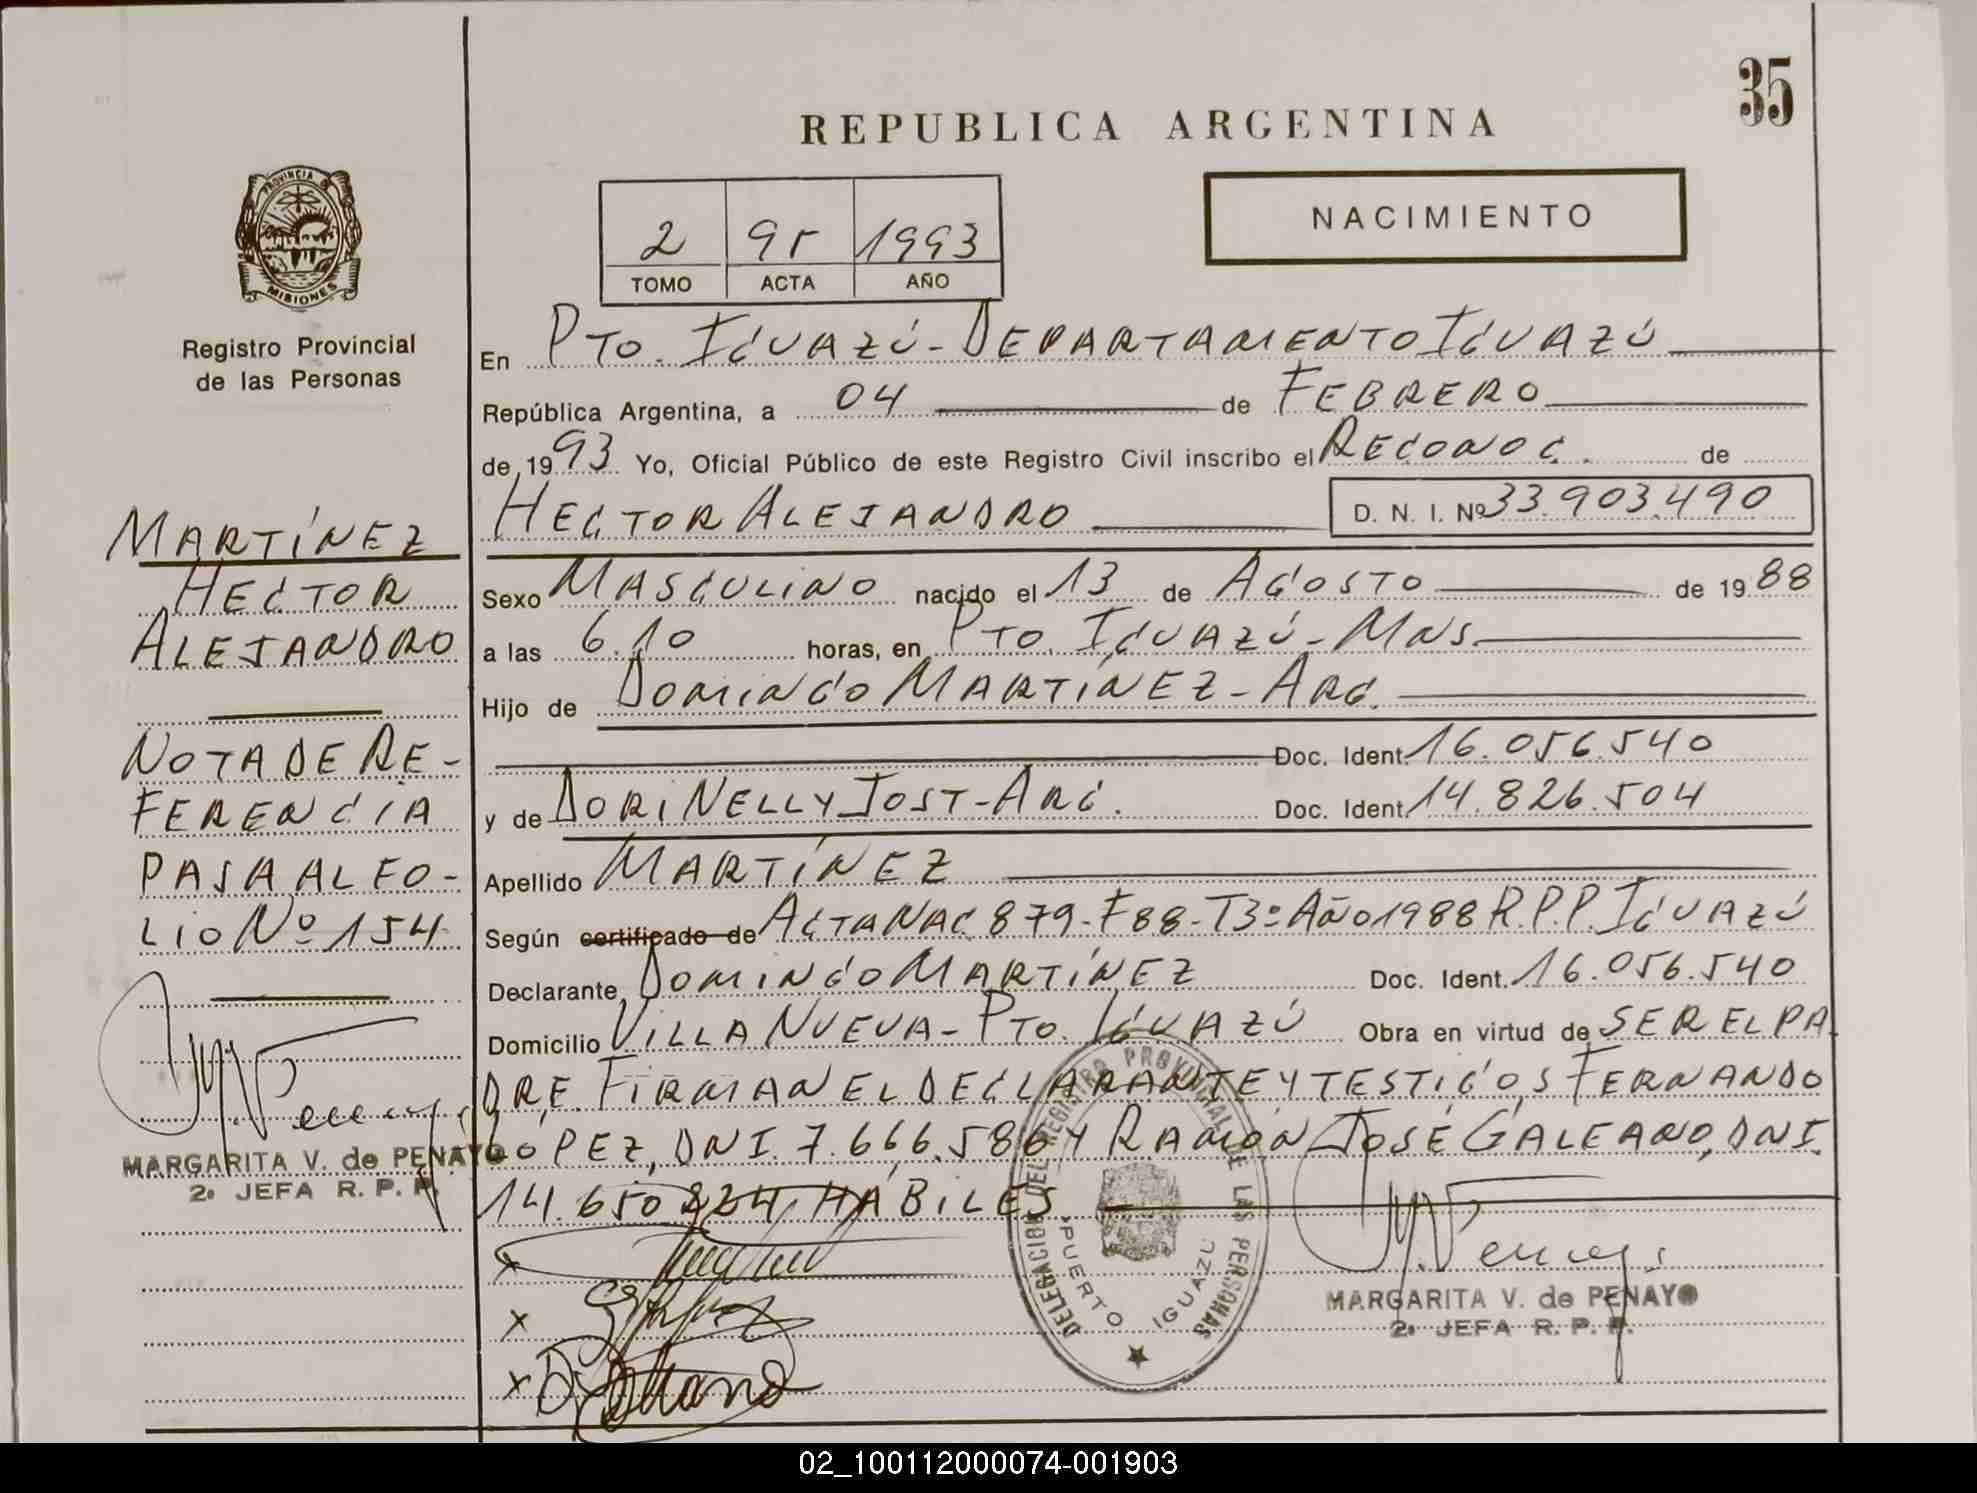 35
REPUBLICA ARGENTINA
NACIMIENTO
2 95 1993
TOMO ACTA AÑO
PROVINCIA DE
MISIONES
Registro Provincial
de las Personas
MARTÍNEZ
HECTOR
ALEJANDRO
NOTA DE RE-
FERENCIA
PASA AL FO-
LIO Nº 154
MARGARITA V. de PENAYO
2º JEFA R. P. P.
En PTO. IGUAZÚ - DEPARTAMENTO IGUAZÚ
República Argentina, a 04 de FEBRERO
de 1993 Yo, Oficial Público de este Registro Civil inscribo el RECONOC. de
HECTOR ALEJANDRO D. N. I. Nº 33.903.490
Sexo MASCULINO nacido el 13 de AGOSTO de 1988
a las 6.10 horas, en PTO. IGUAZÚ - MNS.
Hijo de DOMINGO MARTÍNEZ - ARG.
Doc. Ident. 16.056.540
y de DORI NELLY JOST - ARG. Doc. Ident. 14.826.504
Apellido MARTÍNEZ
Según certificado de ACTA NAC 879 - F88 - T3º AÑO 1988 R.P.P. IGUAZÚ
Declarante DOMINGO MARTÍNEZ Doc. Ident. 16.056.540
Domicilio VILLA NUEVA - PTO. IGUAZÚ Obra en virtud de SER EL PA
DRE. FIRMAN EL DECLARANTE Y TESTIGOS FERNANDO
LÓPEZ, DNI. 7.666.586 Y RAMÓN JOSÉ GALEANO, DNI.
14.650.824, HÁBILES
DELEGACION DEL REGISTRO PROVINCIAL DE LAS PERSONAS
PUERTO IGUAZU
MARGARITA V. de PENAYO
2º JEFA R. P. P.
02_100112000074-001903